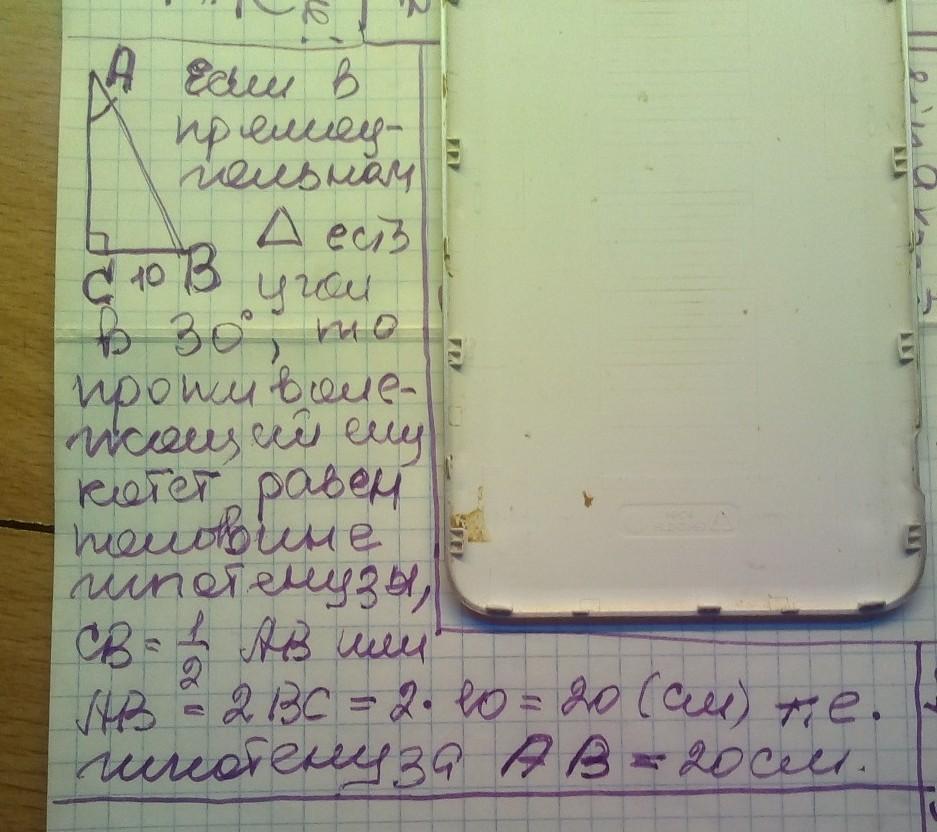 A Если в
прямоу-
гольном
△ есть
C 10 B угол
в 30°, то
противоле-
жащий ему
катет равен
половине
гипотенузы,
CB = 1/2 AB или
AB = 2BC = 2·10 = 20 (см) т.е.
гипотенуза AB = 20 см.